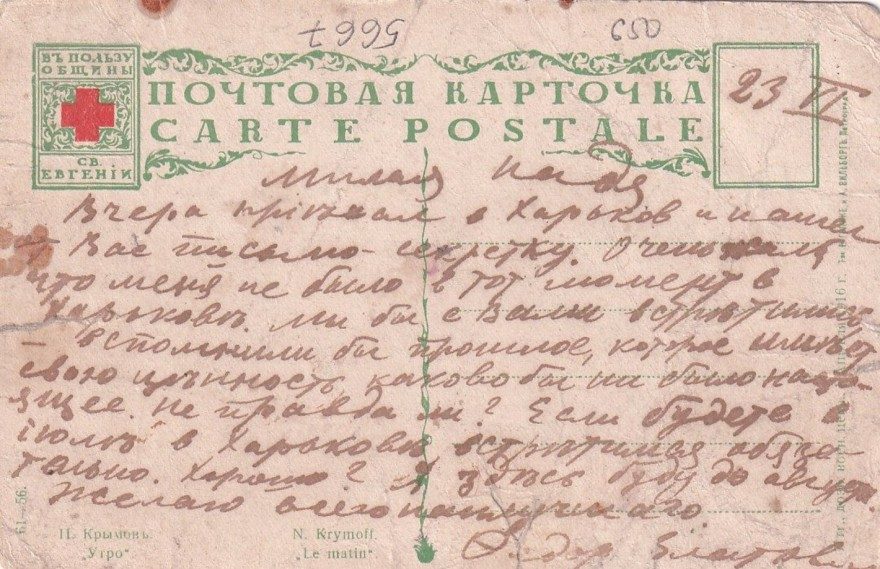 5667
650
ВЪ ПОЛЬЗУ
ОБЩИНЫ
СВ.
ЕВГЕНIИ
ПОЧТОВАЯ КАРТОЧКА
CARTE POSTALE
23 VI
Милая Надя
Вчера прiѣхал в Харьков и нашел
Вас письмо-секретку. Очень жаль
что меня не было в тот момент в
Харьковѣ. Ми бы с Вами встрѣтились
вспомнили бы прошлое, которое имѣет
свою цѣнность каково бы ни было насто-
ящее. Не правда ли? Если будете в
iюлѣ в Харьковѣ встрѣтимся обяза-
тельно. Хорошо? Я здѣсь буду до августа.
Желаю всего наилучшаго
61-56.
Н. Крымовъ.
"Утро"
N. Krymoff.
"Le matin"